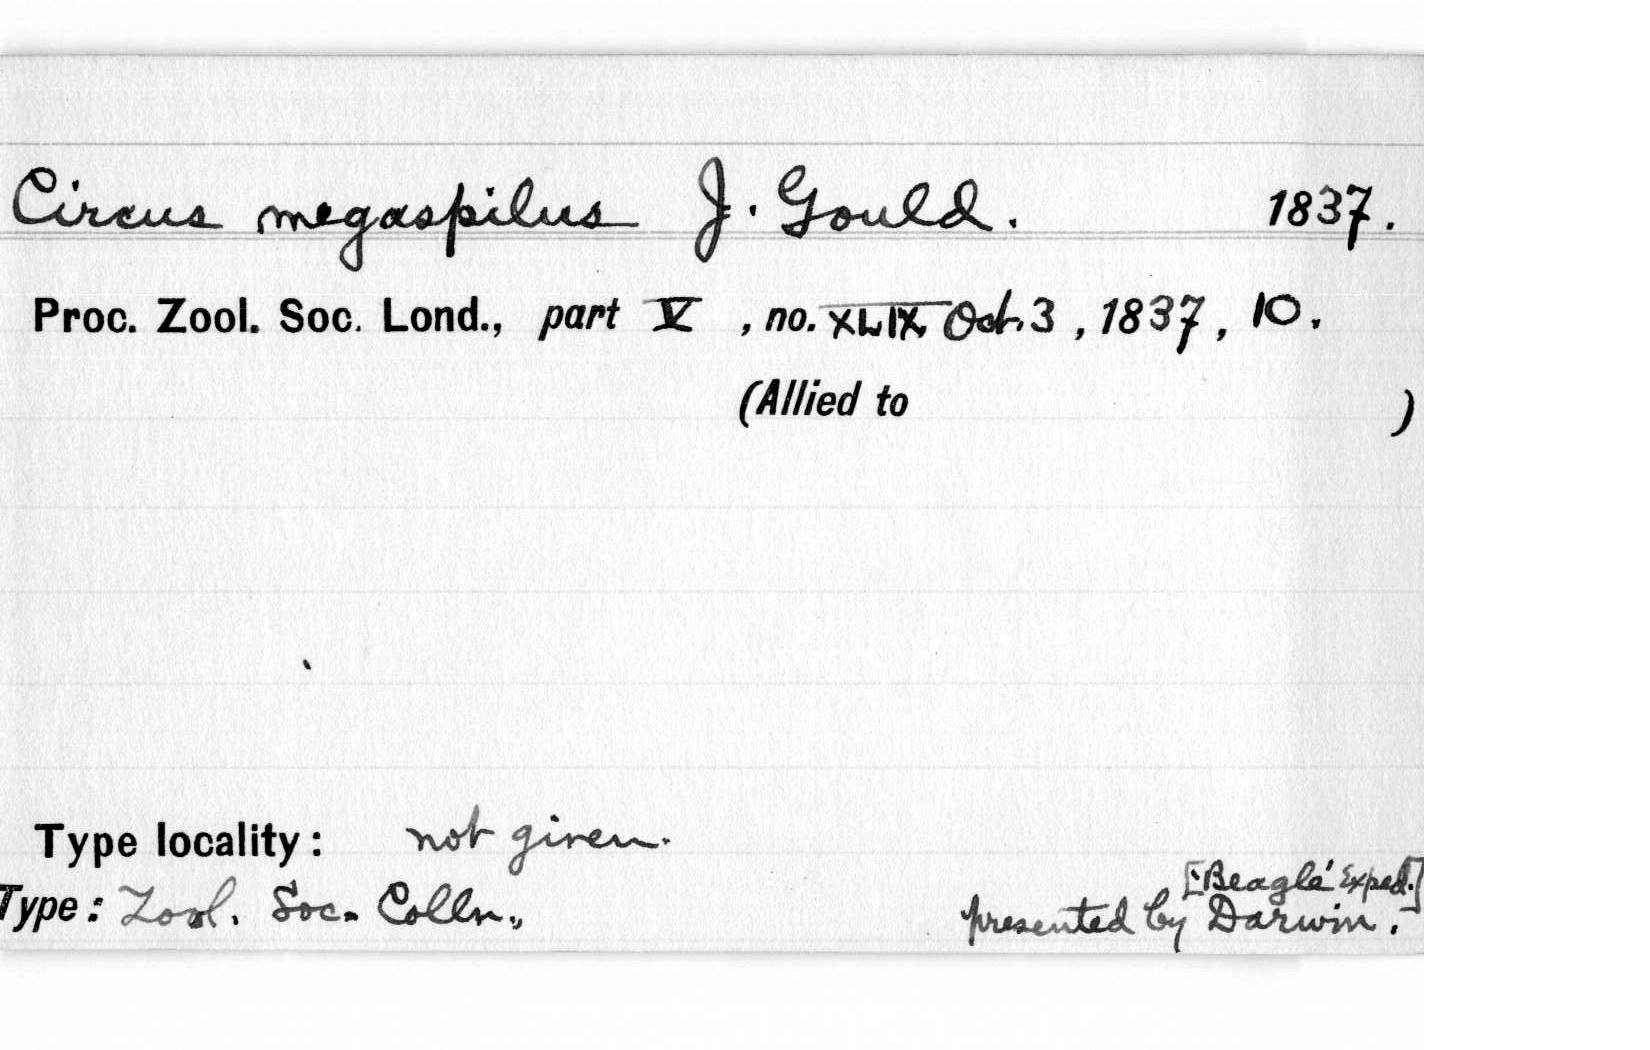 Circus megaspilus J. Gould. 1837.
Proc. Zool. Soc. Lond., part V , no. XLIX Oct. 3 , 1837 , 10.
(Allied to )
Type locality : not given.
['Beagle' Exped.]
Type : Zool. Soc. Colln., presented by Darwin.